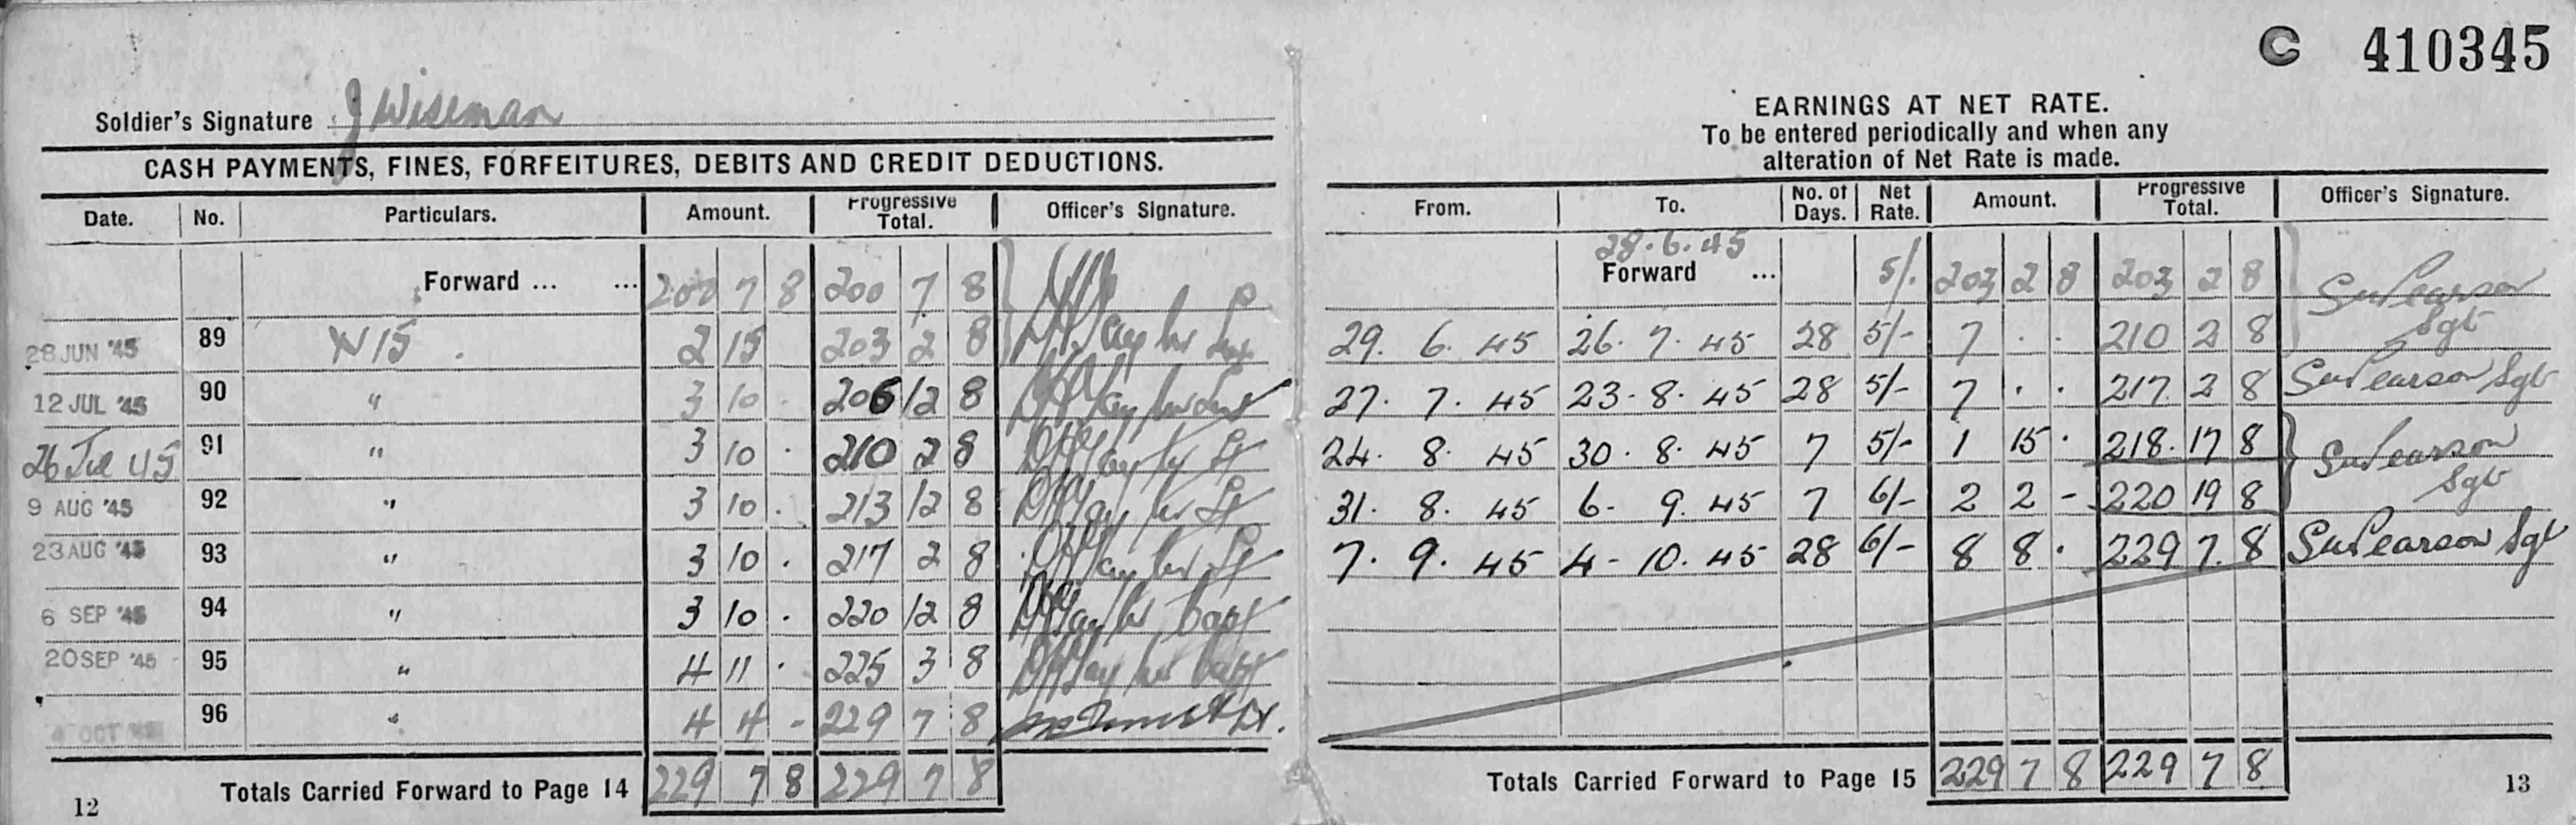 C 410345
Soldier's Signature J Wiseman
CASH PAYMENTS, FINES, FORFEITURES, DEBITS AND CREDIT DEDUCTIONS.
Date. No. Particulars. Amount. Progressive Total. Officer's Signature.
Forward ... ... 200 7 8 200 7 8
28 JUN '45 89 N15 . 2 15 203 2 8
12 JUL '45 90 " 3 10 . 206 12 8
26 Jul 45 91 " 3 10 . 210 2 8
9 AUG '45 92 " 3 10 . 213 12 8
23 AUG '45 93 " 3 10 . 217 2 8
6 SEP '45 94 " 3 10 . 220 12 8 Capt
20 SEP '45 95 " 4 11 . 225 3 8 Capt
4 OCT 96 " 4 4 - 229 7 8 Lt.
Totals Carried Forward to Page 14 229 7 8 229 7 8
12
EARNINGS AT NET RATE.
To be entered periodically and when any
alteration of Net Rate is made.
From. To. No. of Days. Net Rate. Amount. Progressive Total. Officer's Signature.
28.6.45
Forward ... 5/. 203 2 8 203 2 8 Pearson
29. 6. 45 26. 7. 45 28 5/- 7 . . 210 2 8 Sgt
27. 7. 45 23. 8. 45 28 5/- 7 . . 217. 2 8 Pearson Sgt
24. 8. 45 30. 8. 45 7 5/- 1 15 . 218. 17 8 Pearson
31. 8. 45 6. 9. 45 7 6/- 2 2 - 220 19 8 Sgt
7. 9. 45 4 - 10. 45 28 6/- 8 8 . 229 7. 8 Pearson Sgt
Totals Carried Forward to Page 15 229 7 8 229 7 8
13